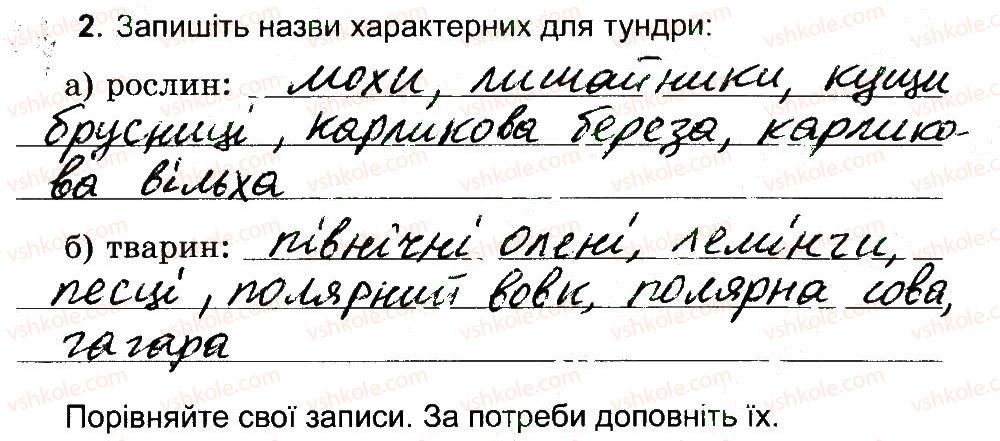 2. Запишіть назви характерних для тундри:
а) рослин: мохи, лишайники, кущи
брусниці, карликова береза, карлико-
ва вільха
б) тварин: північні олені, лемінги,
песці, полярний вовк, полярна сова,
гагара
Порівняйте свої записи. За потреби доповніть їх.